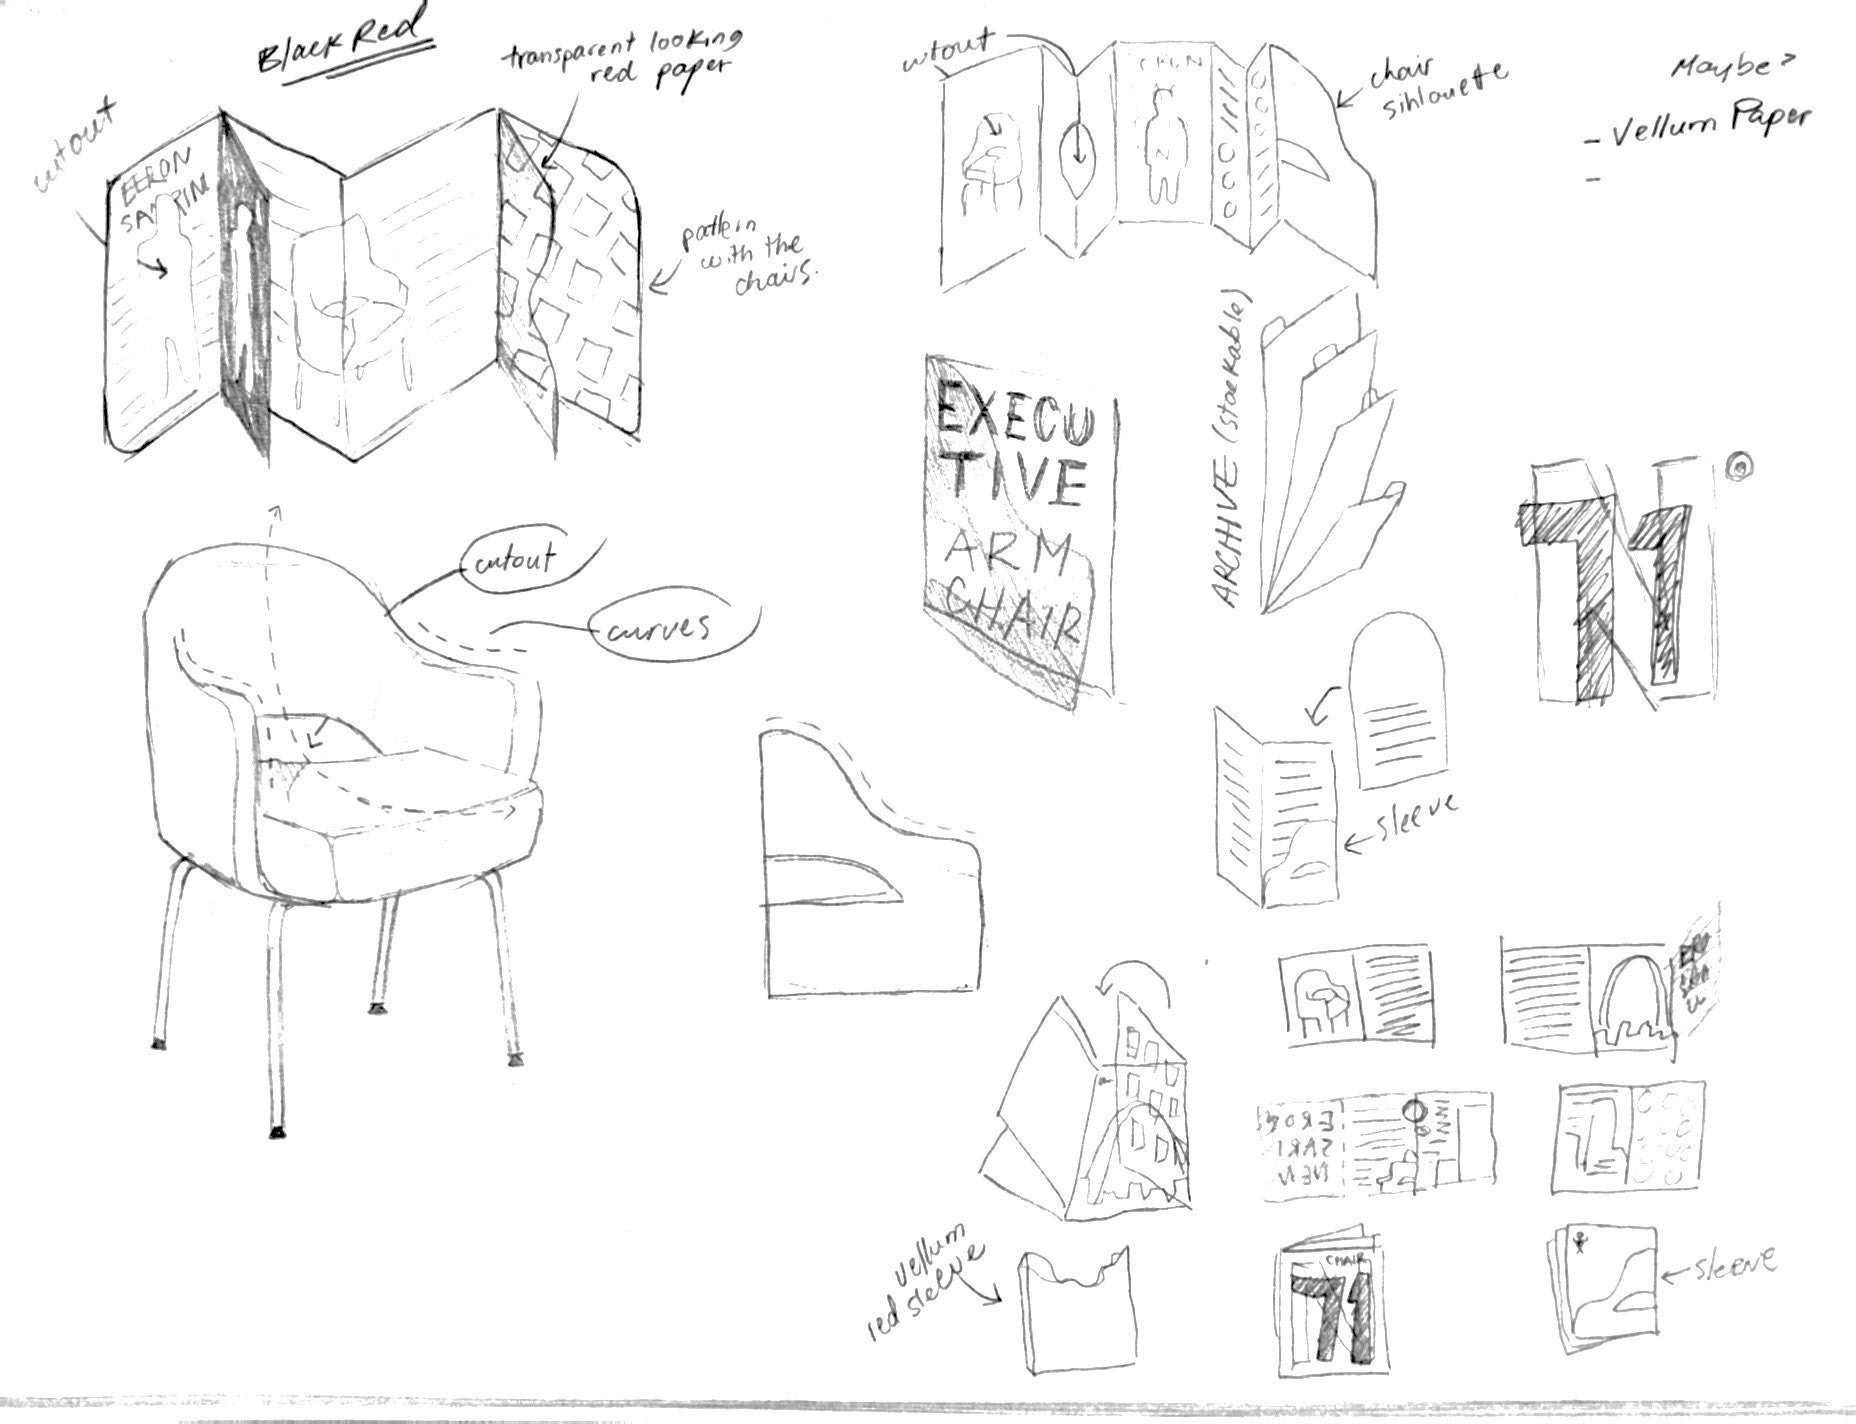 Black Red
transparent looking
red paper
cutout
EERON
SAARIN
pattern
with the
chairs.
cutout
chair
sihlouette
Maybe?
- Vellum Paper
-
EXECU
TIVE
ARM
CHAIR
ARCHIVE (stackable)
N
71
cutout
curves
sleeve
vellum
red sleeve
CHAIR
71
sleeve